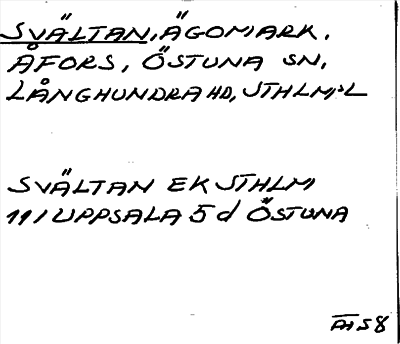 SVÄLTAN, ÄGOMARK,
ÅFORS, ÖSTUNA SN,
LÅNGHUNDRA HD, STHLM:S L
SVÄLTAN EK STHLM
111 UPPSALA 5 d ÖSTUNA